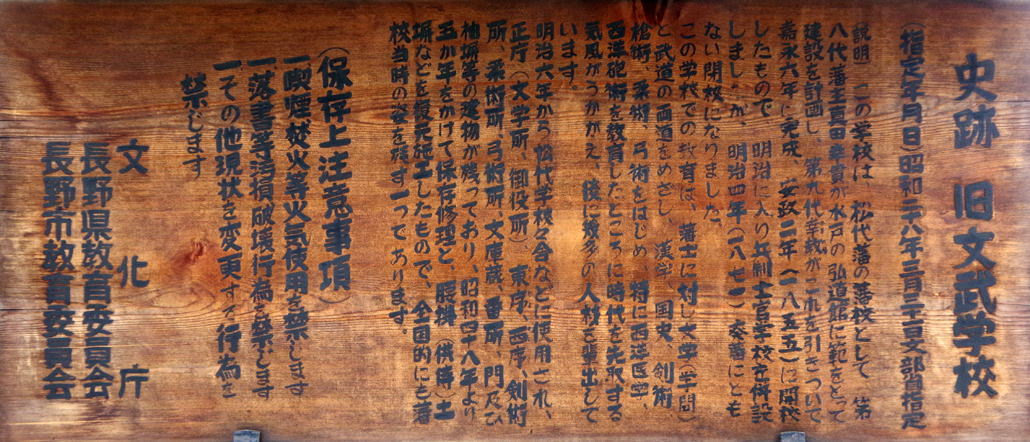 史跡 旧文武学校
(指定年月日)昭和二八年三月三一日文部省指定
説明 この学校は、松代藩の藩校として、第
八代藩主真田幸貫が水戸の弘道館に範をとって
建設を計画し、第九代幸教がこれを引きついで
嘉永六年に完成、安政二年(一八五五)に開校
したもので、明治に入り兵制士官学校を併設
しましたが、明治四年(一八七一)廃藩にとも
ない閉校になりました。
この学校での教育は、藩士に対し文学(学問)
と武道の両道をめざし、漢学、国史、剣術
槍術、柔術、弓術をはじめ、特に西洋医学、
西洋砲術を教育したところに時代を先取する
気風がうかがえ、後に数多の人材を輩出して
います。
明治六年から松代学校々舎などに使用され、
正庁(文学所、御役所)東序、西序、剣術
所、柔術所、弓術所、文庫蔵、番所、門及び
柚塀等の建物が残っており、昭和四十八年より
五か年をかけて保存修理と、腰掛(供待)土
塀などを復元施工したもので、全国的にも藩
校当時の姿を残す一つであります。
(保存上注意事項)
一喫煙焚火等火気使用を禁じます
一落書等汚損破壊行為を禁じます
一その他現状を変更する行為を
禁じます
文化庁
長野県教育委員会
長野市教育委員会